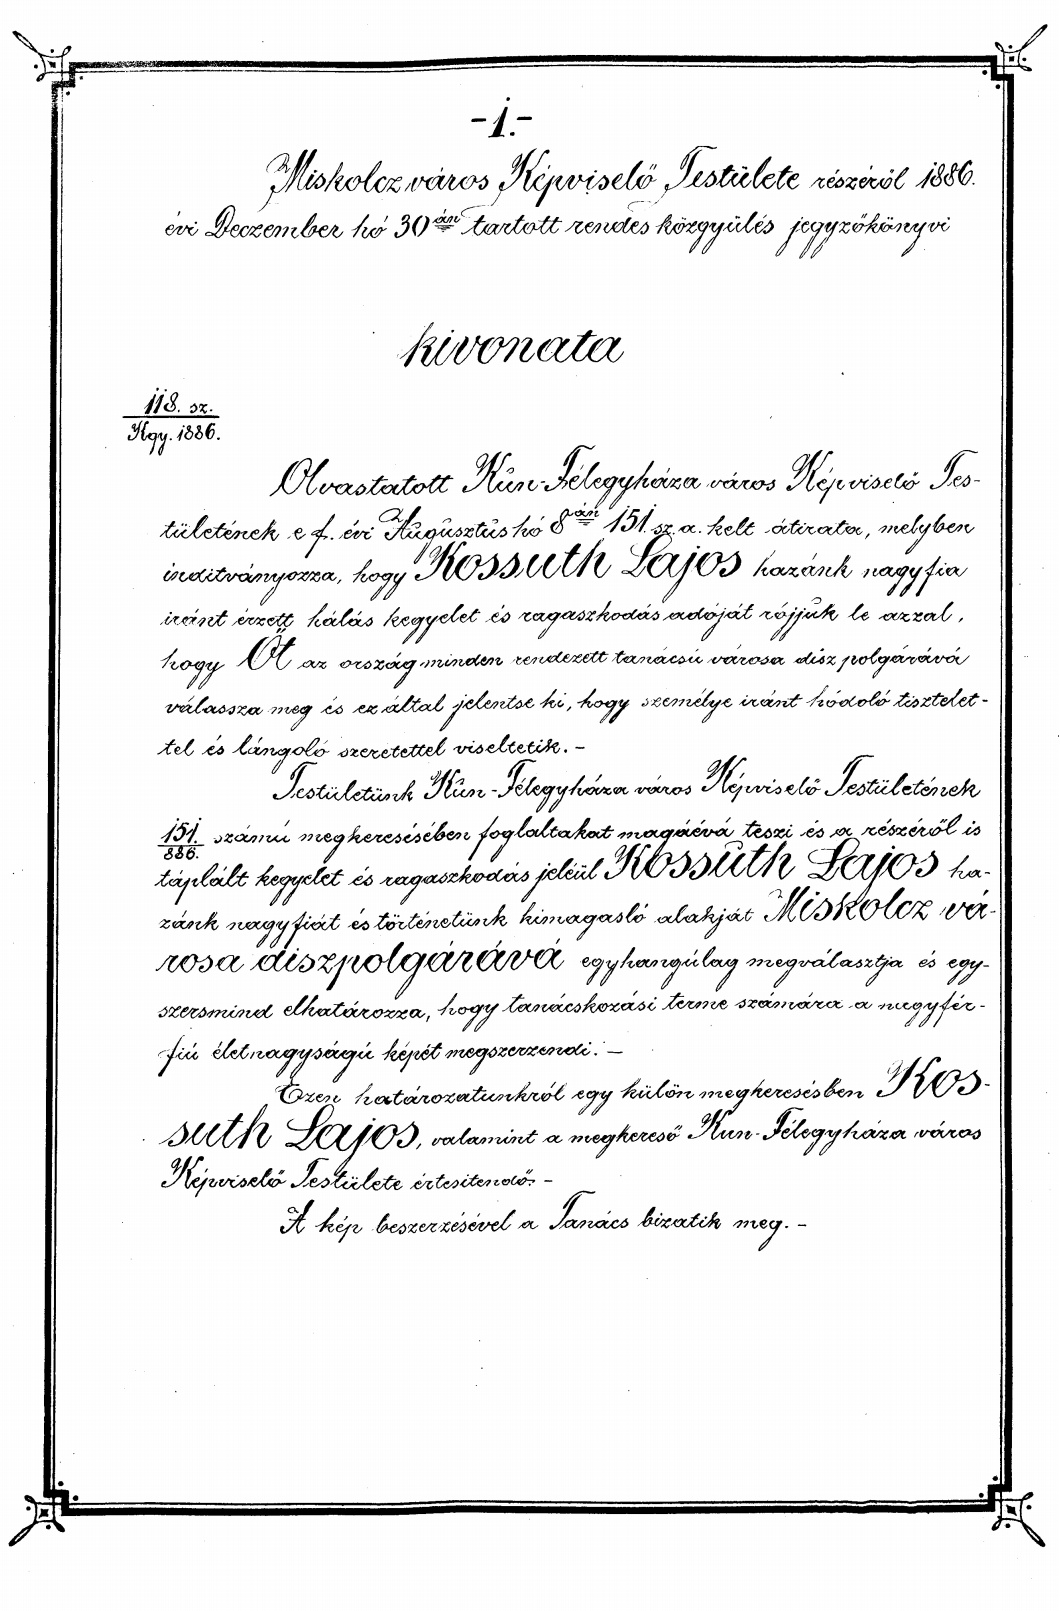 -1.-
Miskolcz város Képviselő Testülete részéről 1886.
évi Deczember hó 30án tartott rendes közgyülés jegyzőkönyvi
kivonata
118. sz.
Kgy. 1886.
Olvastatott Kún-Félegyháza város Képviselő Tes-
tületének e f. évi Augusztus hó 8án 151 sz. a. kelt átirata, melyben
inditványozza, hogy Kossuth Lajos hazánk nagy fia
iránt érzett hálás kegyelet és ragaszkodás adóját rójjuk le azzal,
hogy Őt az ország minden rendezett tanácsú városa disz polgárává
válassza meg és ez által jelentse ki, hogy személye iránt hódoló tisztelet-
tel és lángoló szeretettel viseltetik. -
Testületünk Kún-Félegyháza város Képviselő Testületének
151./886. számú megkeresésében foglaltakat magáévá teszi és a részéről is
táplált kegyelet és ragaszkodás jeléül Kossuth Lajos ha-
zánk nagy fiát és történetünk kimagasló alakját Miskolcz vá-
rosa diszpolgárává egyhangúlag megválasztja és egy-
szersmind elhatározza, hogy tanácskozási terme számára a nagy fér-
fiú életnagyságú képét megszerzendi. -
Ezen határozatunkról egy külön megkeresésben Kos-
suth Lajos, valamint a megkereső Kun-Félegyháza város
Képviselő Testülete értesitendő. -
A kép beszerzésével a Tanács bizatik meg. -